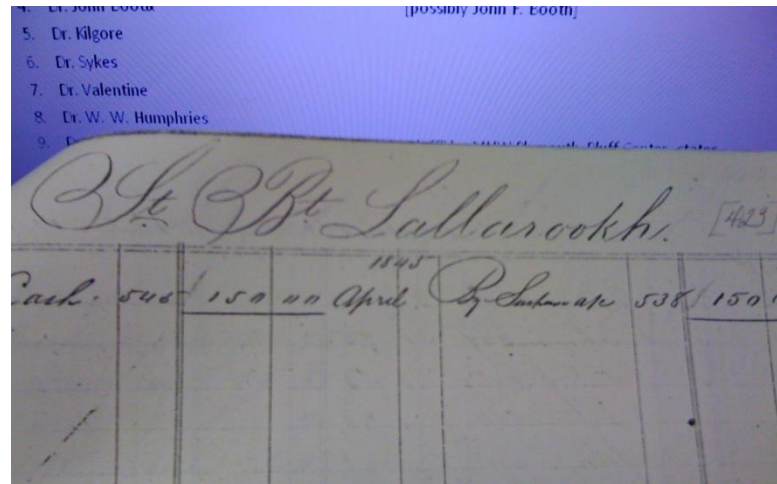 4. Dr. John Booth [possibly John F. Booth]
5. Dr. Kilgore
6. Dr. Sykes
7. Dr. Valentine
8. Dr. W. W. Humphries
9.
St Bt Lallarookh. [423]
1845
Cash. 545 150 00 April By a/c 538 150